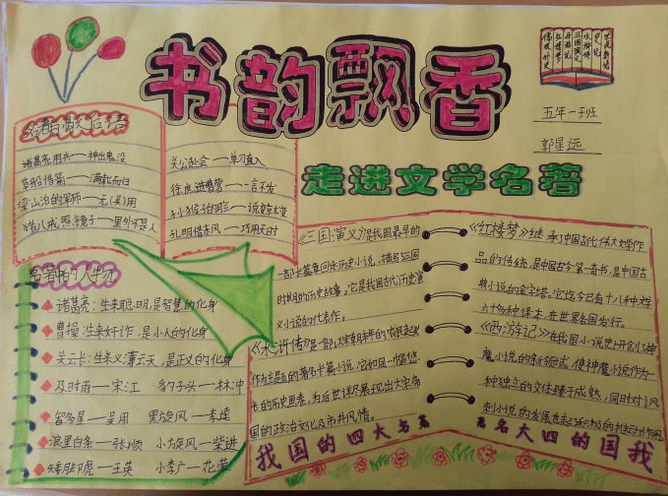 书韵飘香
走进文学名著
五年一班
郭星远
名著的歇后语
诸葛亮用兵——神出鬼没
草船借箭——满载而归
梁山泊的军师——无(吴)用
猪八戒照镜子——里外不是人
关公赴会——单刀直入
徐庶进曹营——一言不发
孙猴子的脸——说变就变
孔明借东风——巧用天时
名著中的人物
诸葛亮:生来聪明,是智慧的化身
曹操:生来奸诈,是小人的化身
关云长:生来义薄云天,是正义的化身
及时雨——宋江 豹子头——林冲
智多星——吴用 黑旋风——李逵
浪里白条——张顺 小旋风——柴进
矮脚虎——王英 小李广——花荣
《三国演义》是我国最早的
一部长篇章回体历史小说,描写三国
时期的历史故事。它是我国古代历史演
义小说的代表作。
《水浒传》是一部以农民起义
作为主题的著名长篇小说,它如同一幅悠
长的历史画卷,为后世详尽展现出大宋帝
国的政治文化及市井风情。
《红楼梦》继承了中国古代伟大文学作
品的传统,是中国古今第一奇书,是中国古
典小说的金字塔。它迄今已有十八种文字
六十多种译本,在世界各国发行。
《西游记》在我国小说史上开创了神
魔小说的新领域,使神魔小说作为
一种独立的文体臻于成熟,同时对讽
刺小说的发展也起了积极的
我国的四大名著
著名大四的国我